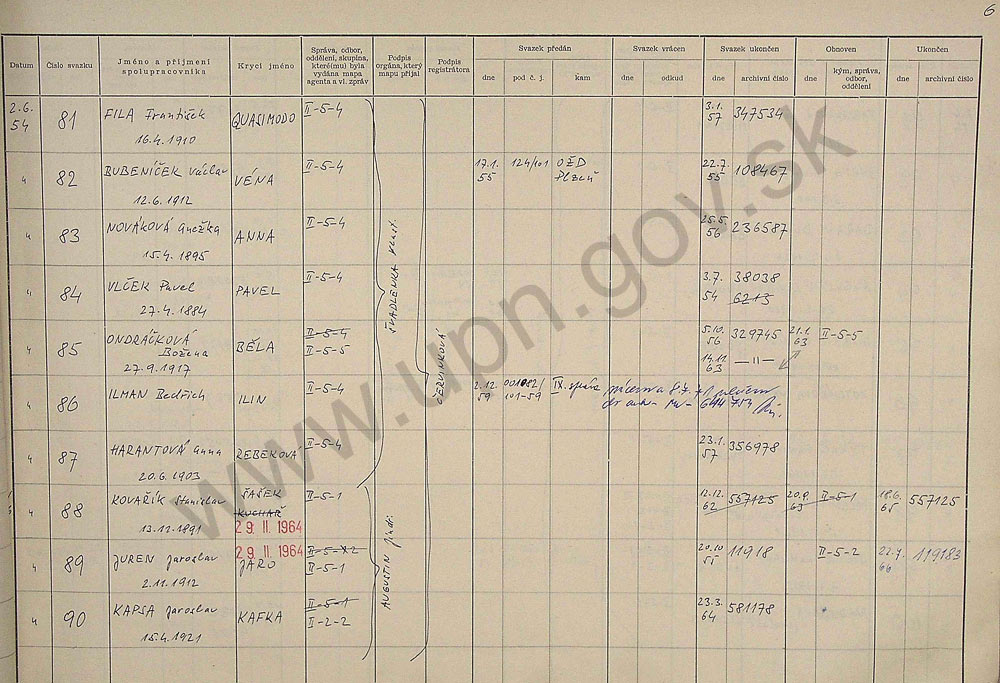 6
Datum
Číslo svazku
Jméno a příjmení
spolupracovníka
Krycí jméno
Správa, odbor,
oddělení, skupina,
které(mu) byla
vydána mapa
agenta a vl. zpráv
Podpis
orgána, který
mapu přijal
Podpis
registrátora
Svazek předán
dne
pod č. j.
kam
Svazek vrácen
dne
odkud
Svazek ukončen
dne
archivní číslo
Obnoven
dne
kým, správa,
odbor,
oddělení
Ukončen
dne
archivní číslo
2.6.
54
81
FILA František
16.4.1910
QUASIMODO
II-5-4
3.1.
57
347534
" 82
BUBENÍČEK Václav
12.6.1912
VÉNA
II-5-4
17.1.
55
124/101
OŽD
Plzeň
22.7.
55
108467
" 83
NOVÁKOVÁ Anežka
15.4.1895
ANNA
II-5-4
25.5.
56
236587
" 84
VLČEK Pavel
27.4.1884
PAVEL
II-5-4
3.7.
54
38038
6213
" 85
ONDRÁČKOVÁ
Božena
27.9.1917
BĚLA
II-5-4
II-5-5
5.10.
56
329745
14.11.
63
— II —
21.1.
63
II-5-5
" 86
ILMAN Bedřich
ILIN
II-5-4
2.12.
59
001082/
101-59
IX. správa
" 87
HARANTOVÁ Anna
20.6.1903
REBEKOVA
II-5-4
23.1.
57
356978
" 88
KOVAŘÍK Stanislav
13.11.1891
ŠAŠEK
KUCHAŘ
29. II. 1964
II-5-1
12.12.
62
557125
20.9.
63
II-5-1
18.6.
65
557125
" 89
JUREN Jaroslav
2.11.1912
29. II. 1964
JARO
II-5-2
II-5-1
20.10
55
11918
II-5-2
22.4.
66
119183
" 90
KAPSA Jaroslav
15.4.1921
KAFKA
II-5-1
I-2-2
23.3.
64
581178
ŠVADLENKA
AUGUSTIN Jindř.
ČERVINKOVÁ
www.upn.gov.sk